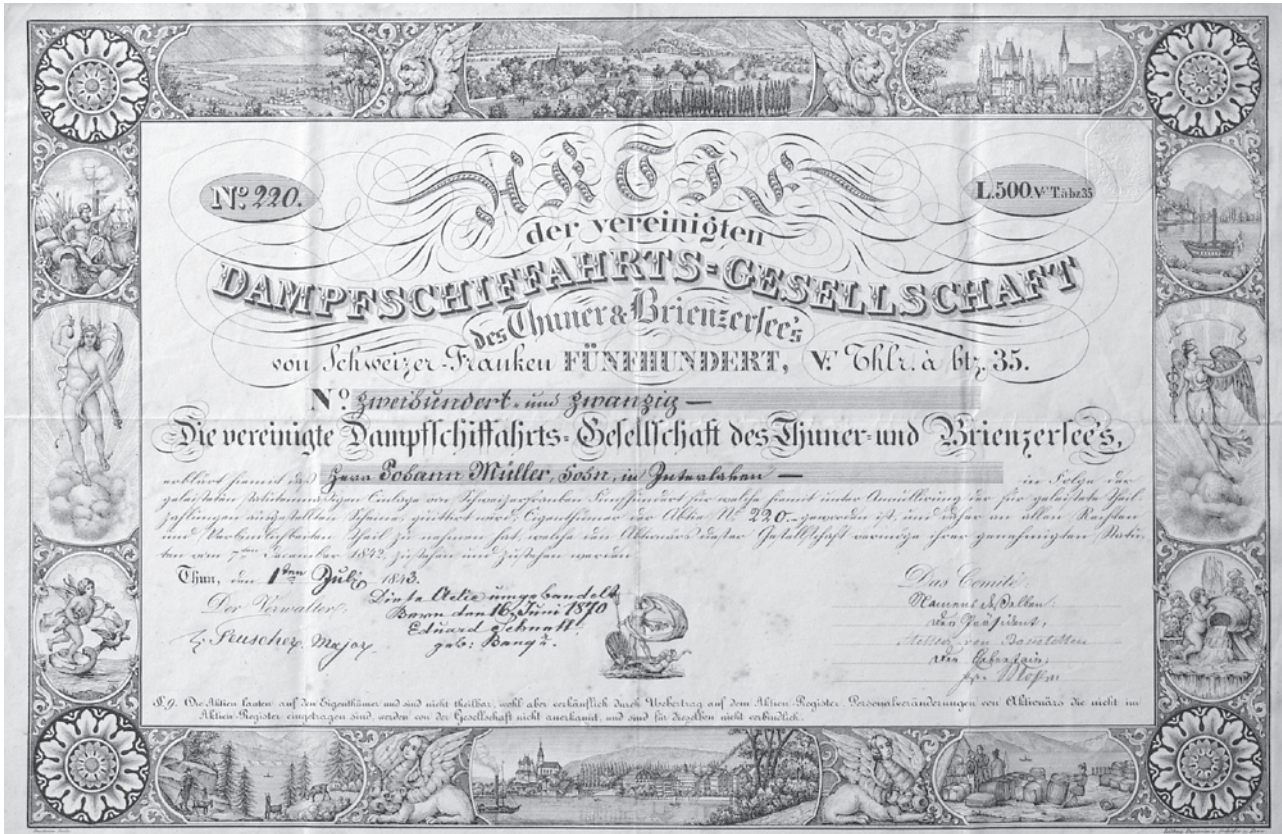 No. 220.
AKTIE
L. 500. V. T. à bz 35
der vereinigten
DAMPFSCHIFFAHRTS-GESELLSCHAFT
des Thuner & Brienzersee's
von Schweizer-Franken FÜNFHUNDERT, V. Thlr. à btz. 35.
No. zweihundert und zwanzig —
Die vereinigte Dampfschiffahrts-Gesellschaft des Thuner- und Brienzersee's,
erklärt hiemit daß Herr Johann Müller, Sohn, in Interlaken — in Folge der
geleisteten Einlage von Schweizerfranken Fünfhundert für welche hiemit unter Annullirung der für geleistete Theil-
zahlungen ausgestellten Scheine, quittirt wird, Eigenthümer der Aktie No. 220.- geworden ist, und daher an allen Rechten
und Verbindlichkeiten Theil zu nehmen hat, welche den Aktionärs dieser Gesellschaft vermöge ihrer genehmigten Statu-
ten vom 7ten December 1842. zustehen und zustehen werden.
Thun, den 1ten July 1843.
Der Verwalter:
Major.
Diese Actie umgehandelt
Bern den 16. Juni 1870
Eduard
geb:
Das Comité
Namens desselben:
Der Präsident,
von
Der
§. 9. Die Aktien lauten auf den Eigenthümer und sind nicht theilbar, wohl aber verkäuflich durch Uebertrag auf dem Aktien-Register. Personalveränderungen von Aktionärs die nicht im
Aktien-Register eingetragen sind, werden von der Gesellschaft nicht anerkannt, und sind für dieselben nicht verbindlich.